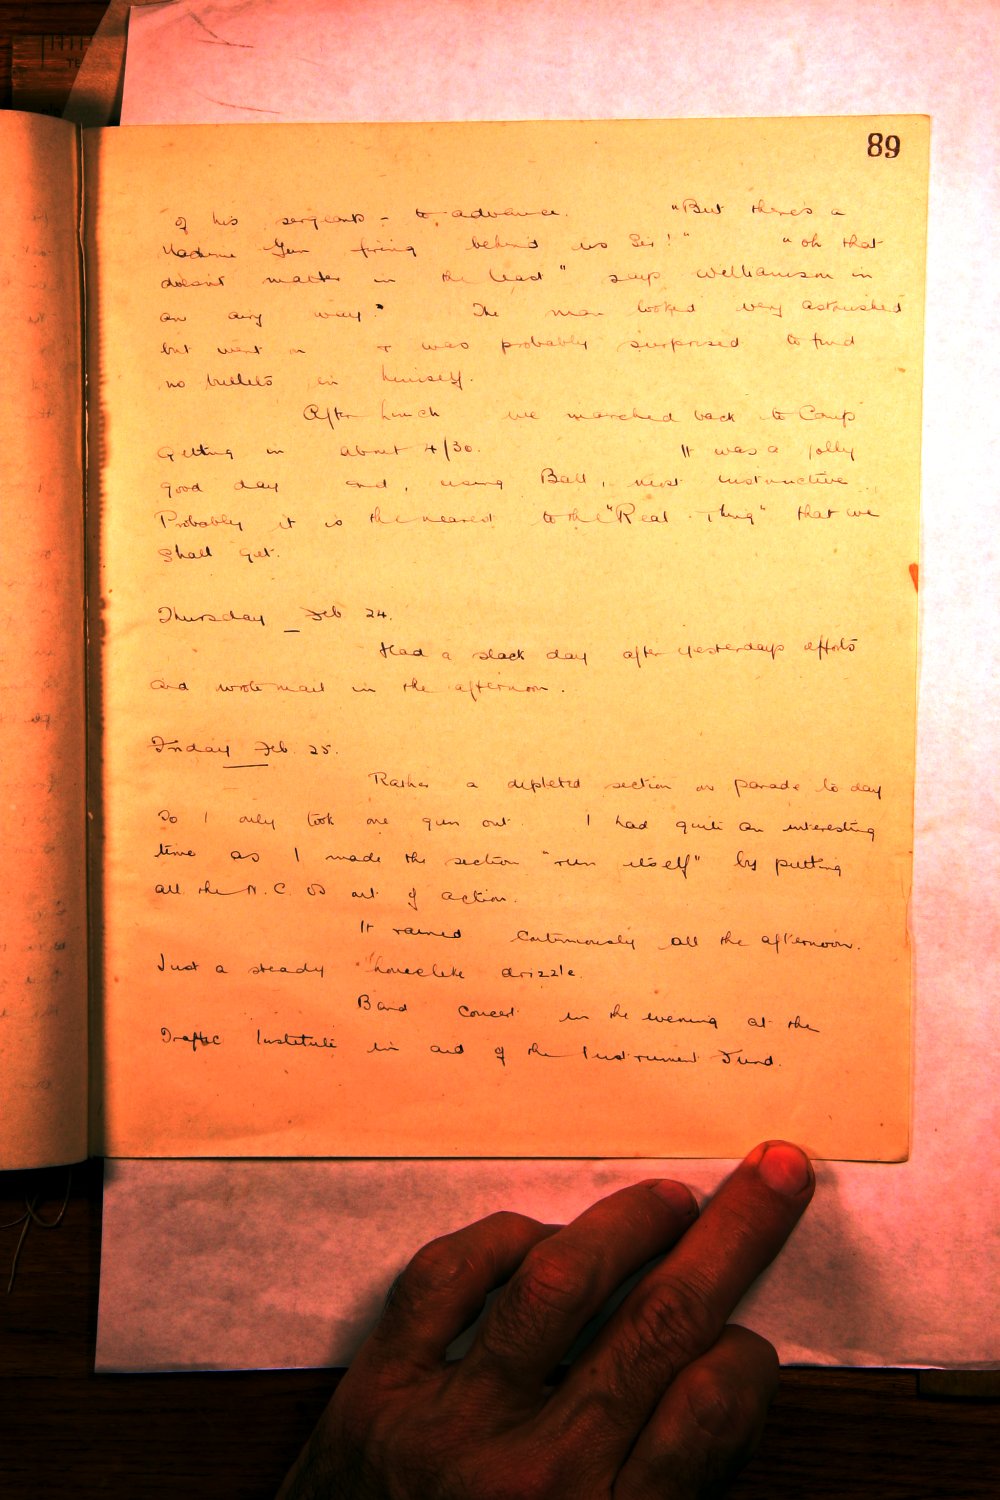 89
of his sergeants - to advance. "But there's a
Machine Gun firing behind us Sir!" "oh that
doesn't matter in the least" says Williamson in
an airy way. The man looked very astonished
but went on & was probably surprised to find
no bullets in himself.
After lunch we marched back to Camp
getting in about 4/30. It was a jolly
good day and, using Ball, most instructive.
Probably it is the nearest to the "Real Thing" that we
shall get.
Thursday _ Feb 24.
Had a slack day after yesterdays efforts
and wrote mail in the afternoon.
Friday Feb. 25.
Rather a depleted section on parade to day
so I only took one gun out. I had quite an interesting
time as I made the section "run itself" by putting
all the N.C.Os out of action.
It rained continuously all the afternoon.
Just a steady "homelike drizzle.
Band Concert in the evening at the
Traffic Institute in aid of the Instrument Fund.